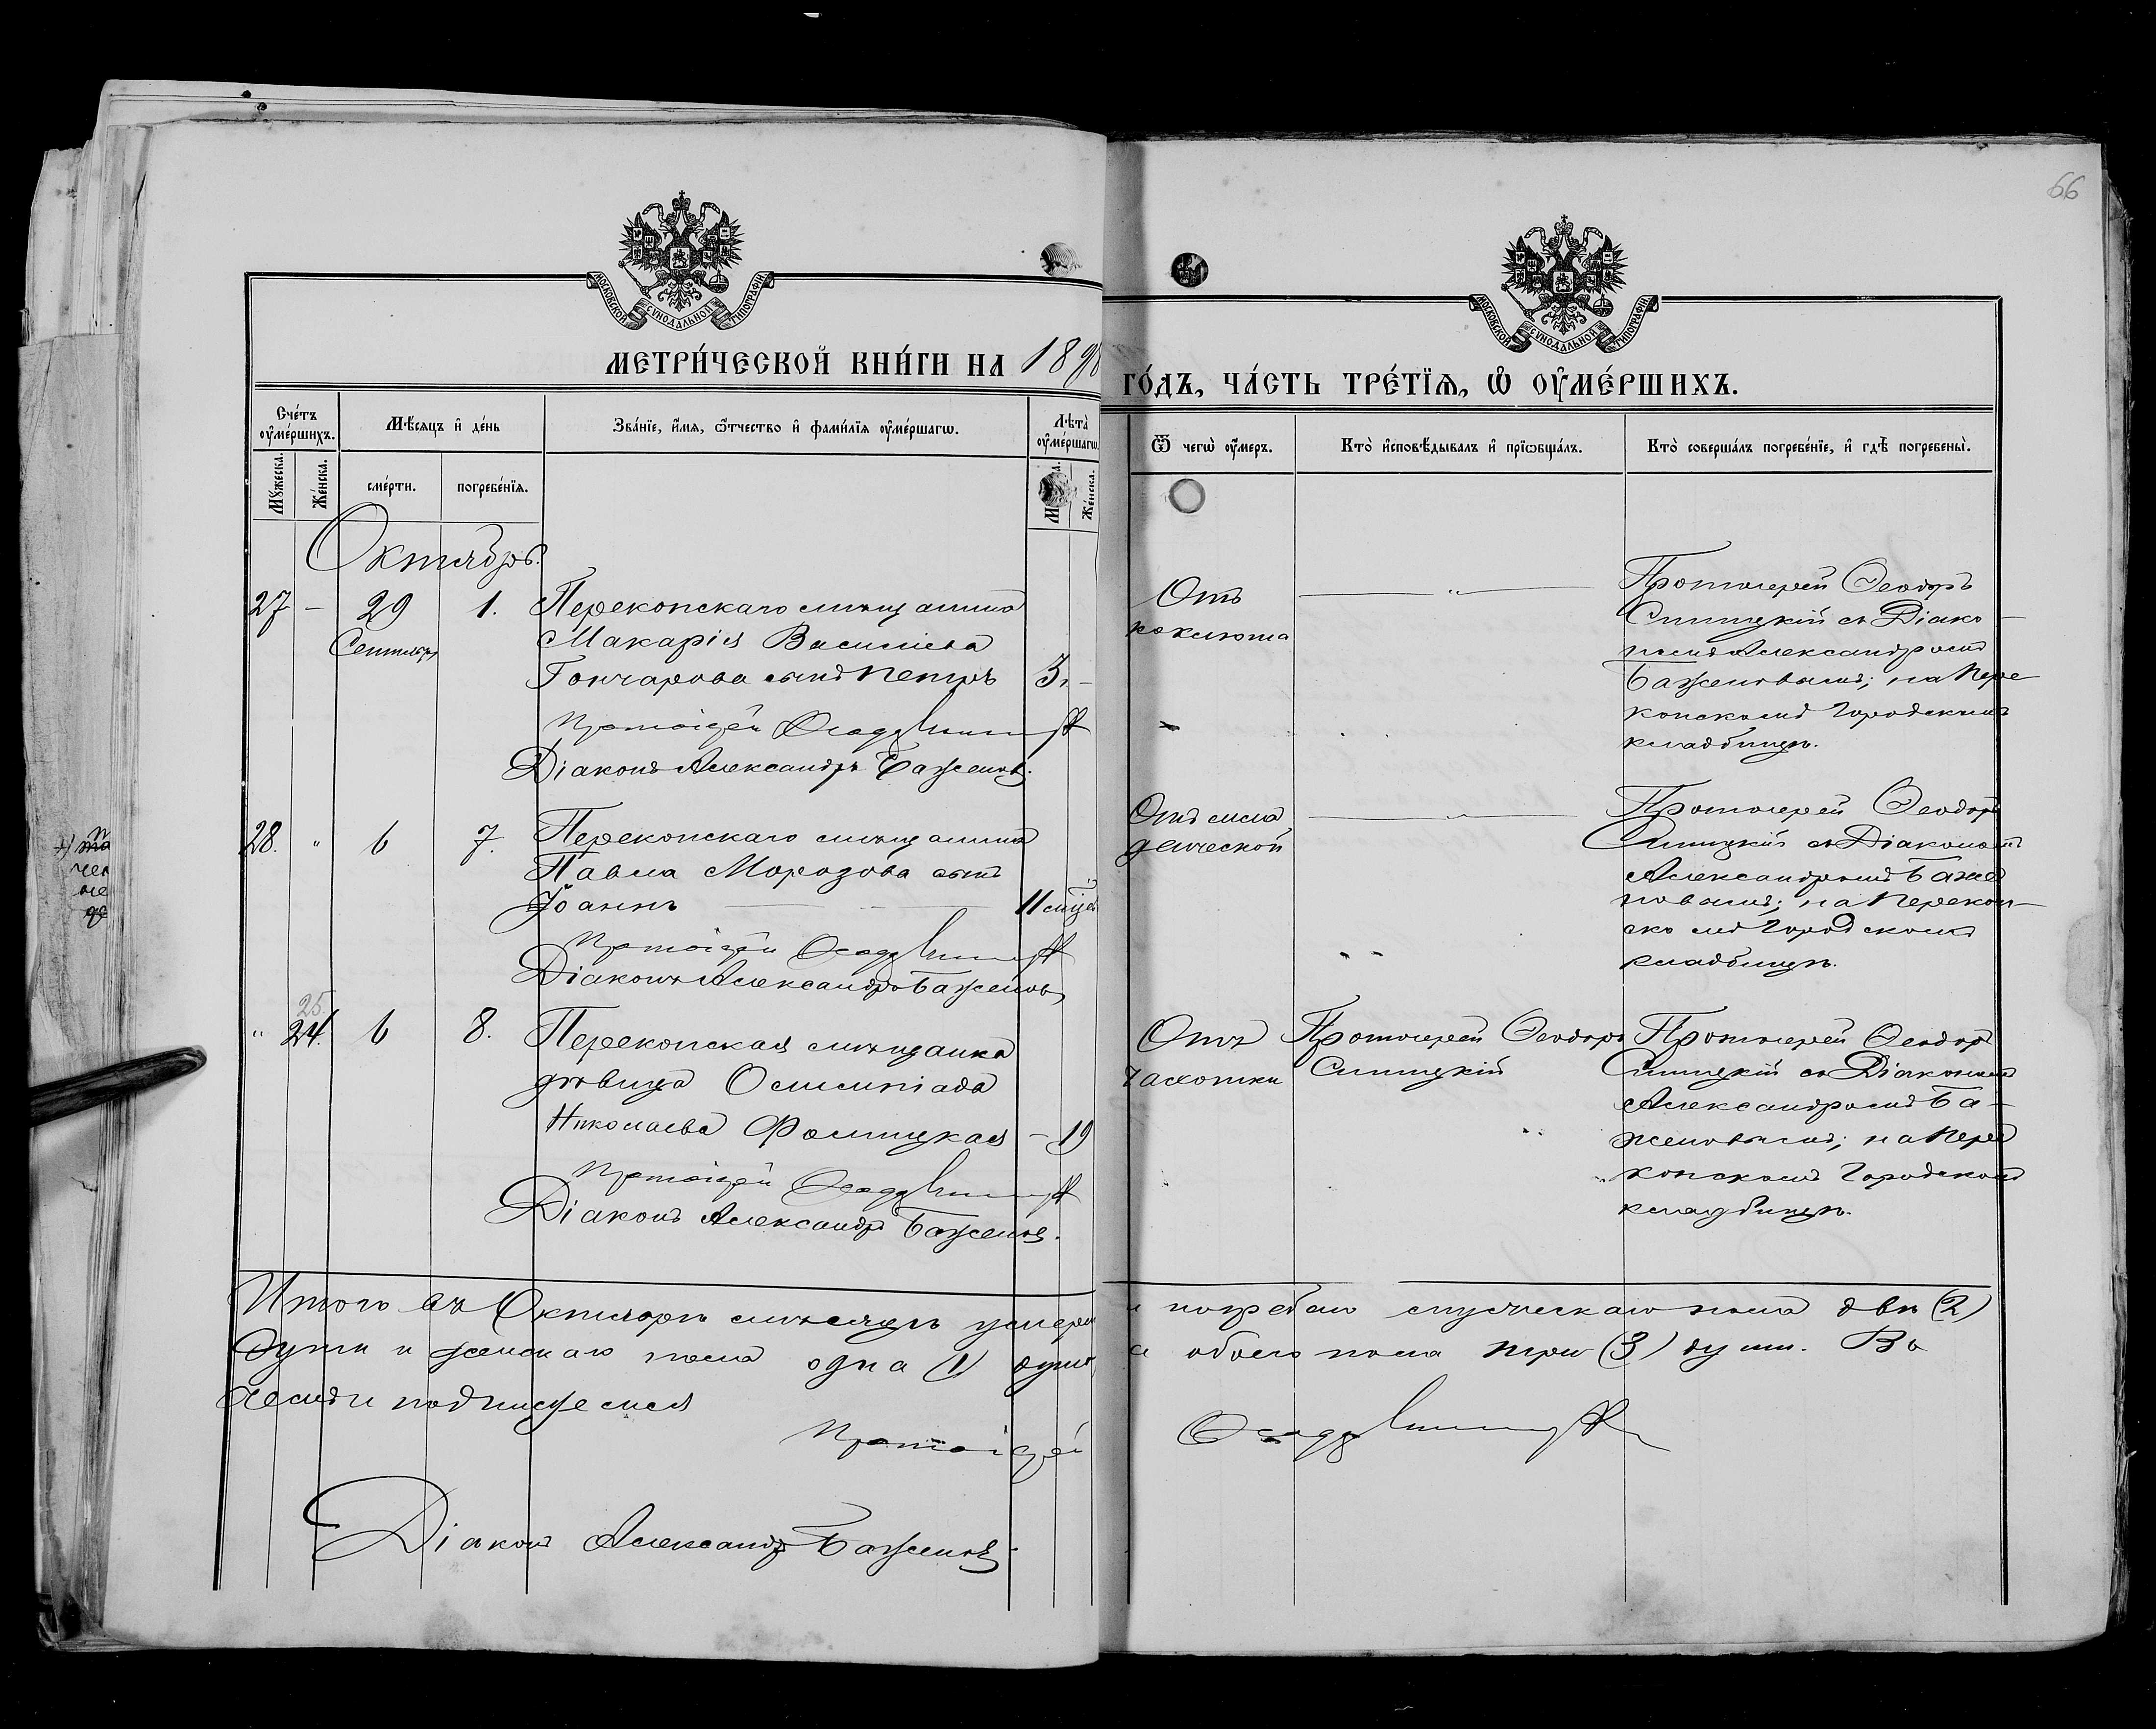 66
МОСКОВСКОЙ СѴНОДАЛЬНОЙ ТИПОГРАФІИ
МОСКОВСКОЙ СѴНОДАЛЬНОЙ ТИПОГРАФІИ
МЕТРИ́ЧЕСКОЙ КНИ́ГИ НА 189
ГО́ДЪ, ЧА́СТЬ ТРЕ́ТЇѦ, Ѡ҆ ОУ҆МЕ́РШИХЪ.
Сче́тъ оу҆ме́ршихъ.
Мѣ́сяцъ и҆ де́нь
Зва́нїе, и҆́мѧ, ѻ҆́тчество и҆ фами́лїѧ оу҆ме́ршагѡ.
Лѣта̀ оу҆ме́ршагѡ.
Ѿ чегѡ̀ оу҆́меръ.
Кто̀ и҆сповѣ́дывалъ и҆ прїѡбща́лъ.
Кто̀ соверша́лъ погребе́нїе, и҆ гдѣ̀ погребены̀.
Мꙋ́жеска.
Же́нска.
сме́рти.
погребе́нїѧ.
Же́нска.
Октябрь.
27 – 29 1. Перекопскаго мѣщанина
Сентября Макарія Васильева
Гончарова сынъ Петръ 3. –
Протоіерей Ѳеодоръ
Діаконъ Александръ Баженовъ.
Отъ
коклюша
Протоіерей Ѳеодоръ
съ Діако–
номъ Александромъ
Баженовымъ; на Пере–
копскомъ Городскомъ
кладбищѣ.
28. " 6 7. Перекопскаго мѣщанина
Павла Морозова сынъ
Іоаннъ 11 мѣс
Протоіерей Ѳеодоръ
Діаконъ Александръ Баженовъ
Отъ мла
денческой
Протоіерей Ѳеодоръ
съ Діакономъ
Александромъ Баже
новымъ; на Перекоп–
скомъ Городскомъ
кладбищѣ.
25.
" 24. 6 8. Перекопская мѣщанка
дѣвица Олимпіада
Николаева – 19
Протоіерей Ѳеодоръ
Діаконъ Александръ Баженовъ.
Отъ
чахотки
Протоіерей Ѳеодоръ
Протоіерей Ѳеодоръ
съ Діакономъ
Александромъ Ба–
женовымъ; на Пере
копскомъ Городскомъ
кладбищѣ.
Итого въ Октябрѣ мѣсяцѣ умерло и погребено мужескаго пола двѣ (2)
души и женскаго пола одна (1) душа а обоего пола три (3) души. Въ
чемъ и подпишемся
Протоіерей Ѳеодоръ
Діаконъ Александръ Баженовъ